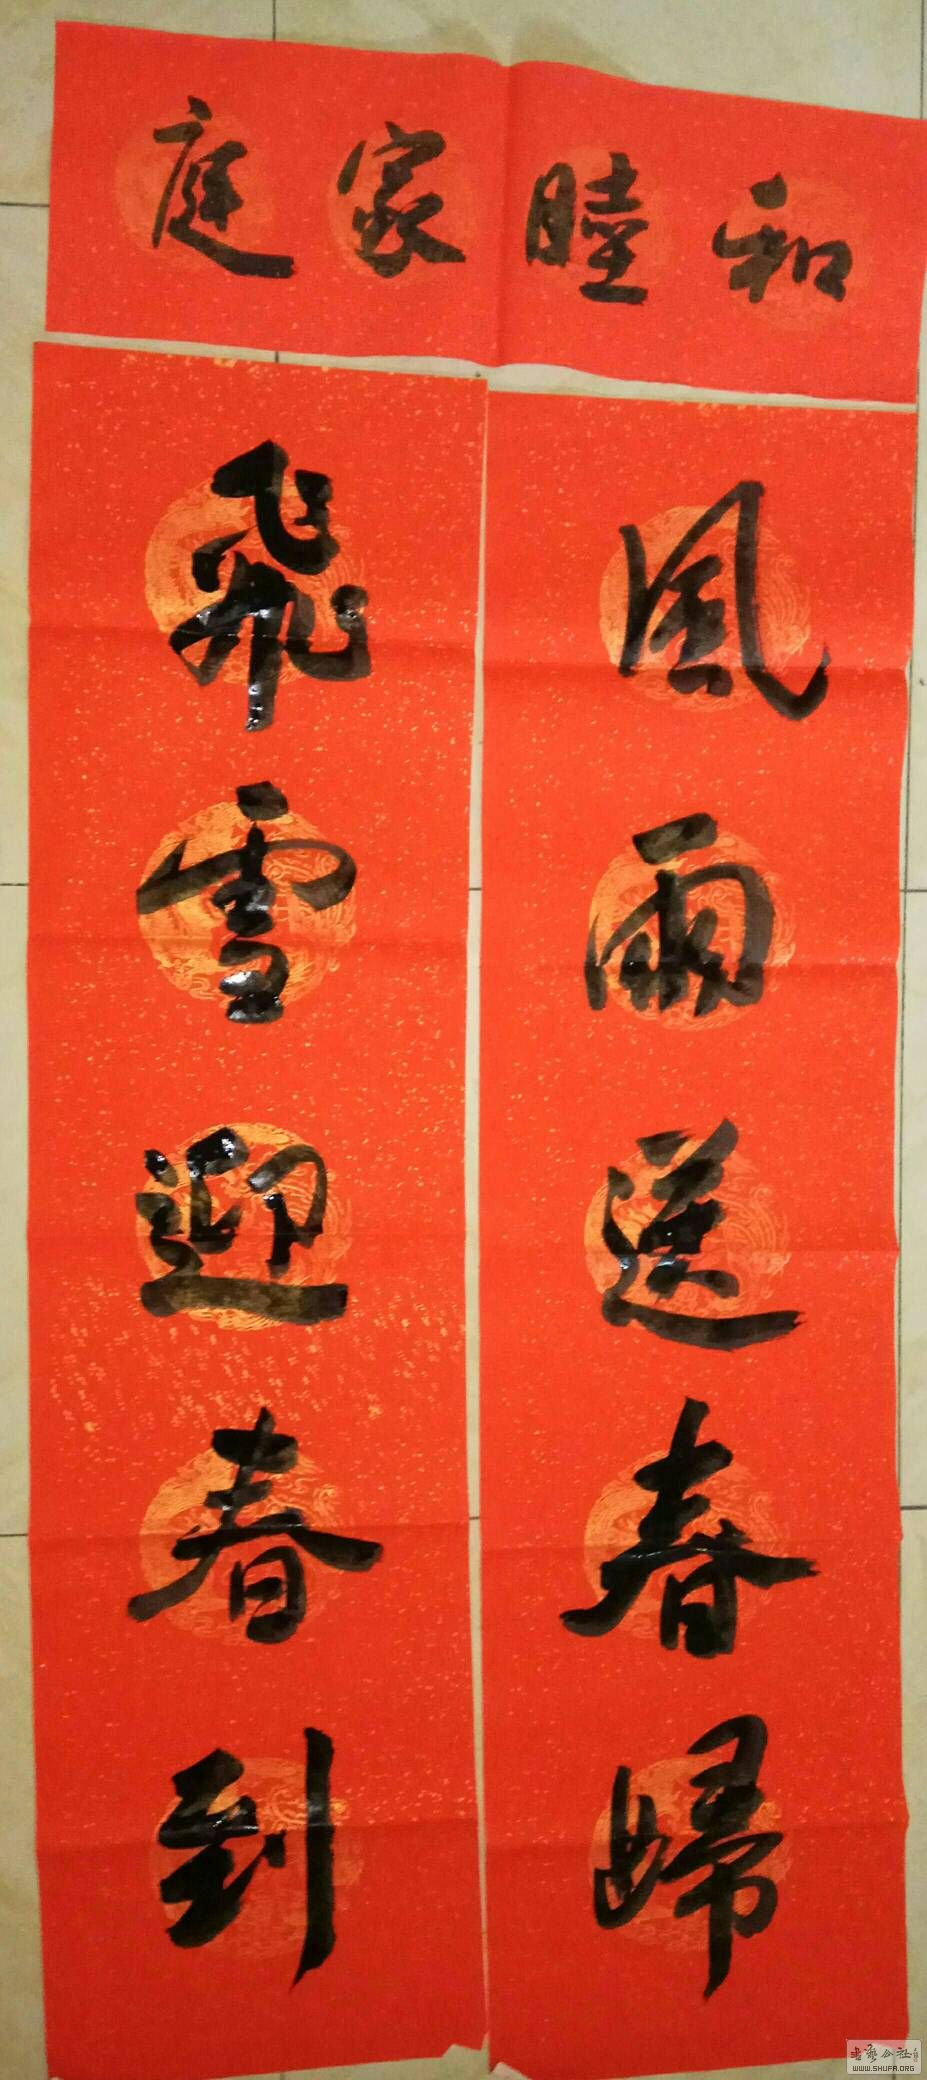 和睦家庭
風雨送春歸
飛雪迎春到
书艺公社
WWW.SHUFA.ORG